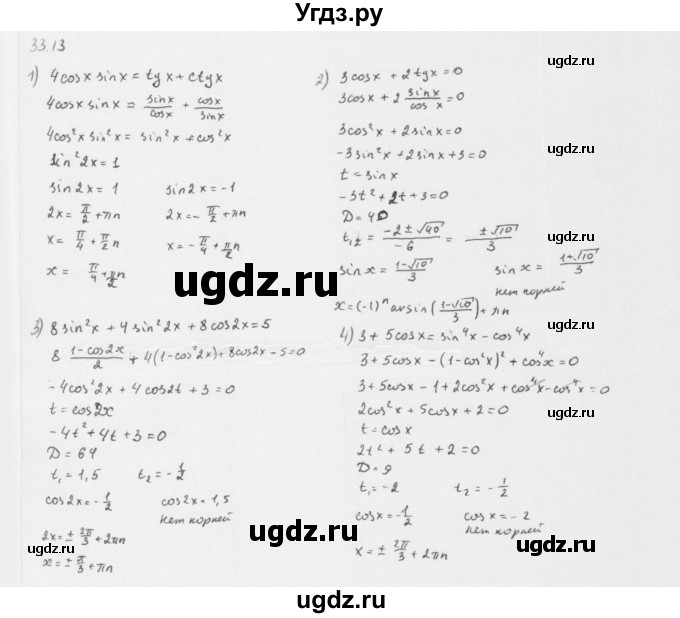 Угдз.ру
33.13
1) 4cosx sinx = tgx + ctgx
4cosx sinx = sinx/cosx + cosx/sinx
4cos²x sin²x = sin²x + cos²x
sin²2x = 1
sin2x = 1 sin2x = -1
2x = π/2 + πn 2x = -π/2 + πn
x = π/4 + π/2 n x = -π/4 + π/2 n
x = π/4 + πn/2
2) 3cosx + 2tgx = 0
3cosx + 2 sinx/cosx = 0
3cos²x + 2sinx = 0
-3sin²x + 2sinx + 3 = 0
t = sinx
-3t² + 2t + 3 = 0
D = 40
t₁,₂ = (-2 ± √40)/-6 = (± √10)/3
sinx = (1-√10)/3 sinx = (1+√10)/3
нет корней
x = (-1)ⁿ arsin((1-√10)/3) + πn
3) 8sin²x + 4sin²2x + 8cos2x = 5
8 (1-cos2x)/2 + 4(1-cos²2x) + 8cos2x - 5 = 0
-4cos²2x + 4cos2t + 3 = 0
t = cos2x
-4t² + 4t + 3 = 0
D = 64
t₁ = 1,5 t₂ = -1/2
cos2x = -1/2 cos2x = 1,5
нет корней
2x = ± 2π/3 + 2πn
x = ± π/3 + πn
4) 3 + 5cosx = sin⁴x - cos⁴x
3 + 5cosx - (1-cos²x)² + cos⁴x = 0
3 + 5cosx - 1 + 2cos²x + cos⁴x - cos⁴x = 0
2cos²x + 5cosx + 2 = 0
t = cosx
2t² + 5t + 2 = 0
D = 9
t₁ = -2 t₂ = -1/2
cosx = -1/2 cosx = -2
нет корней
x = ± 2π/3 + 2πn
ugdz.ru
ugdz.ru
ugdz.ru
ugdz.ru
ugdz.ru
ugdz.ru
ugdz.ru
ugdz.ru
ugdz.ru
ugdz.ru
ugdz.ru
ugdz.ru